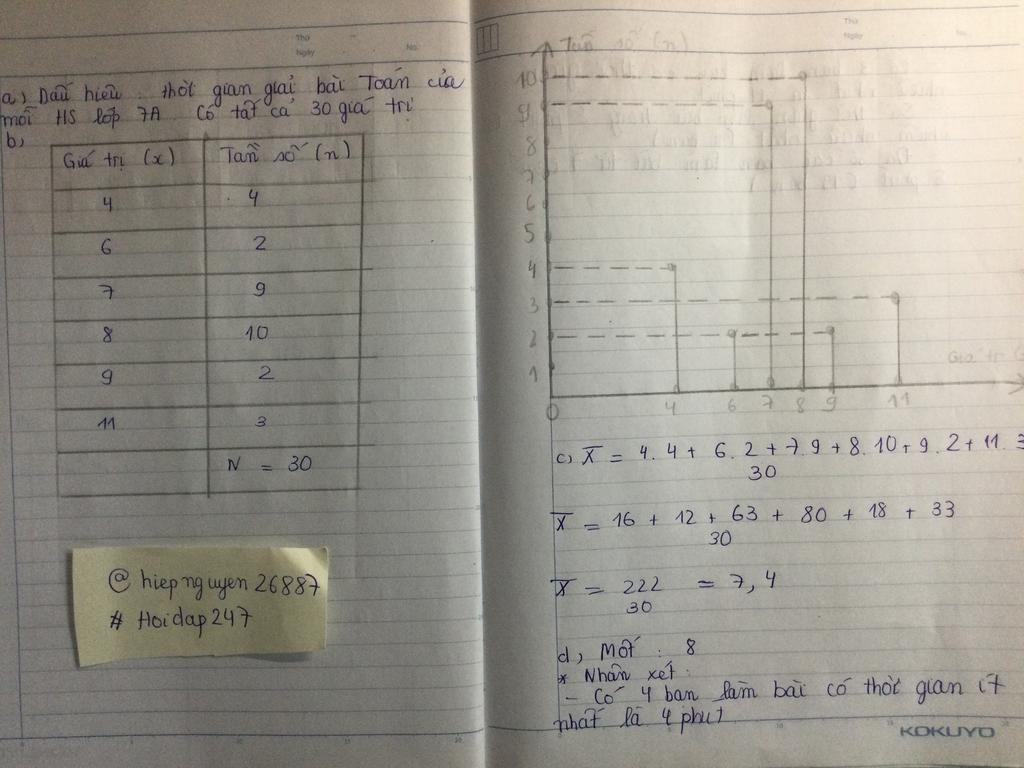 Thứ
Ngày
No.
a, Dấu hiệu : thời gian giải bài Toán của
mỗi HS lớp 7A. Có tất cả 30 giá trị
b,
Giá trị (x) Tần số (n)
4 4
6 2
7 9
8 10
9 2
11 3
N = 30
@ hiepnguyen26887
# Hoidap247
Thứ
Ngày
No.
Tần số (n)
10
9
8
7
6
5
4
3
2
1
Giá trị (
0 4 6 7 8 9 11
c, X = 4.4 + 6.2 + 7.9 + 8.10 + 9.2 + 11.3
30
X = 16 + 12 + 63 + 80 + 18 + 33
30
X = 222 = 7,4
30
d, Mốt : 8
* Nhận xét :
- Có 4 bạn làm bài có thời gian ít
nhất là 4 phút
KOKUYO